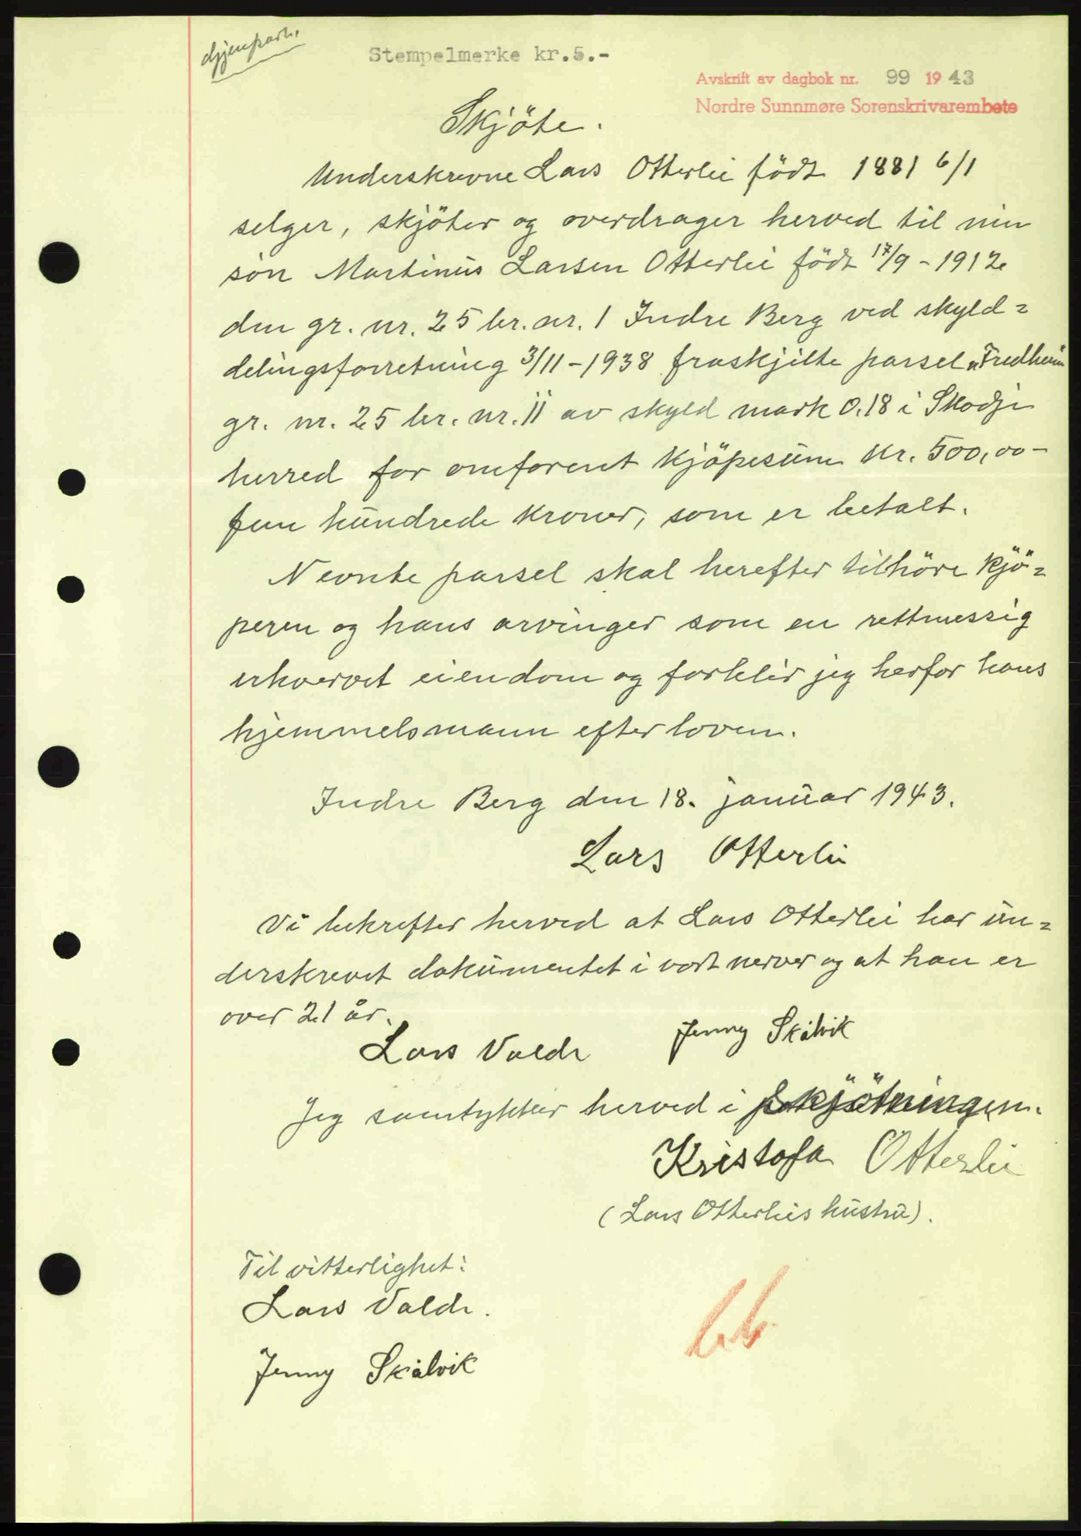 Gjenpart.
Stempelmerke kr.5.-
Avskrift av dagbok nr. 99 1943
Nordre Sunnmøre Sorenskrivarembete
Skjöte.
Underskrevne Lars Otterlei födt 1881 6/1
selger, skjöter og overdrager herved til min
sön Martinus Larsen Otterlei födt 17/9-1912
den gr. nr. 25 br. nr. 1 Indre Berg ved skyld=
delingsforretning 3/11-1938 fraskjilte parsel „Fredheim
gr. nr. 25 br. nr. 11 av skyld mark 0.18 i Skodje
herred for omforent kjöpesum kr. 500,00-
fem hundrede kroner, som er betalt.
Nevnte parsel skal herefter tilhöre kjö=
peren og hans arvinger som en rettmessig
erhvervet eiendom og forblir jeg herfor hans
hjemmelsmann efter loven.
Indre Berg den 18. januar 1943.
Lars Otterlei
Vi bekrefter herved at Lars Otterlei har un=
derskrevet dokumentet i vort nerver og at han er
over 21 år.
Lars Valde Jenny Skålvik
Jeg samtykker herved i skjötningen.
Kristofa Otterlei
(Lars Otterleis hustru).
Til vitterlighet:
Lars Valde.
Jenny Skålvik